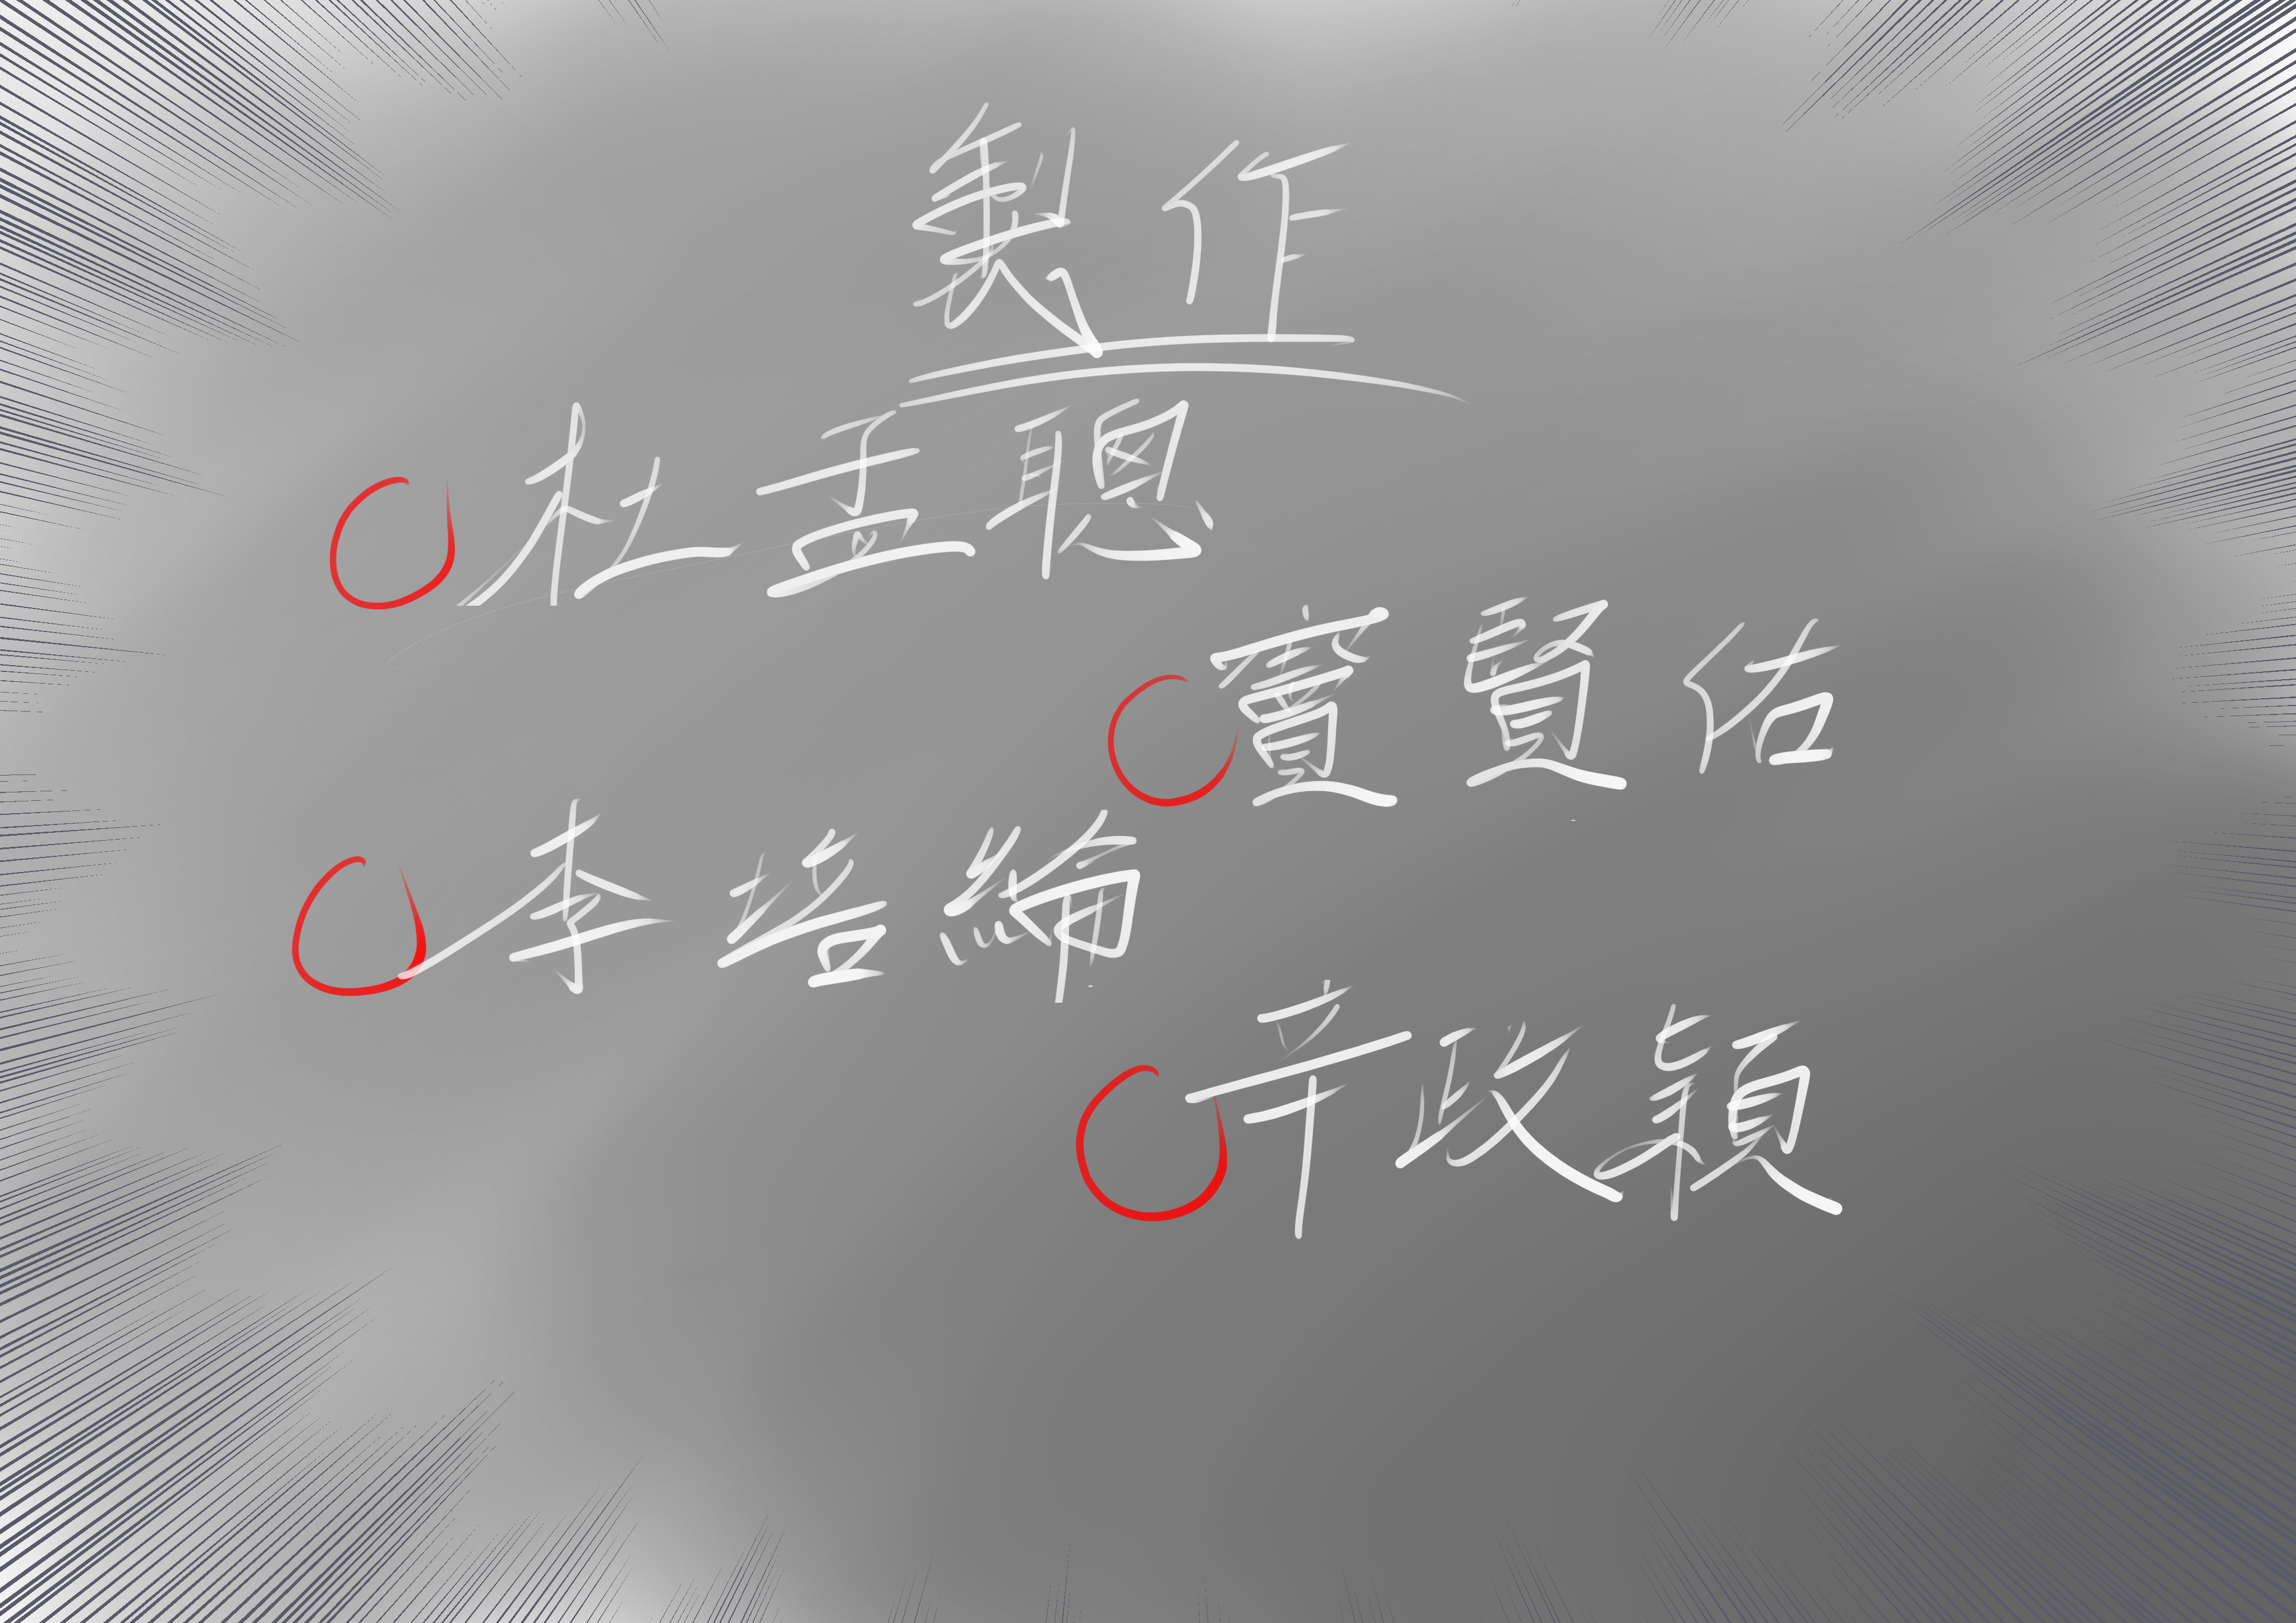 製作
杜孟聰
竇賢佑
李培綸
辛政穎